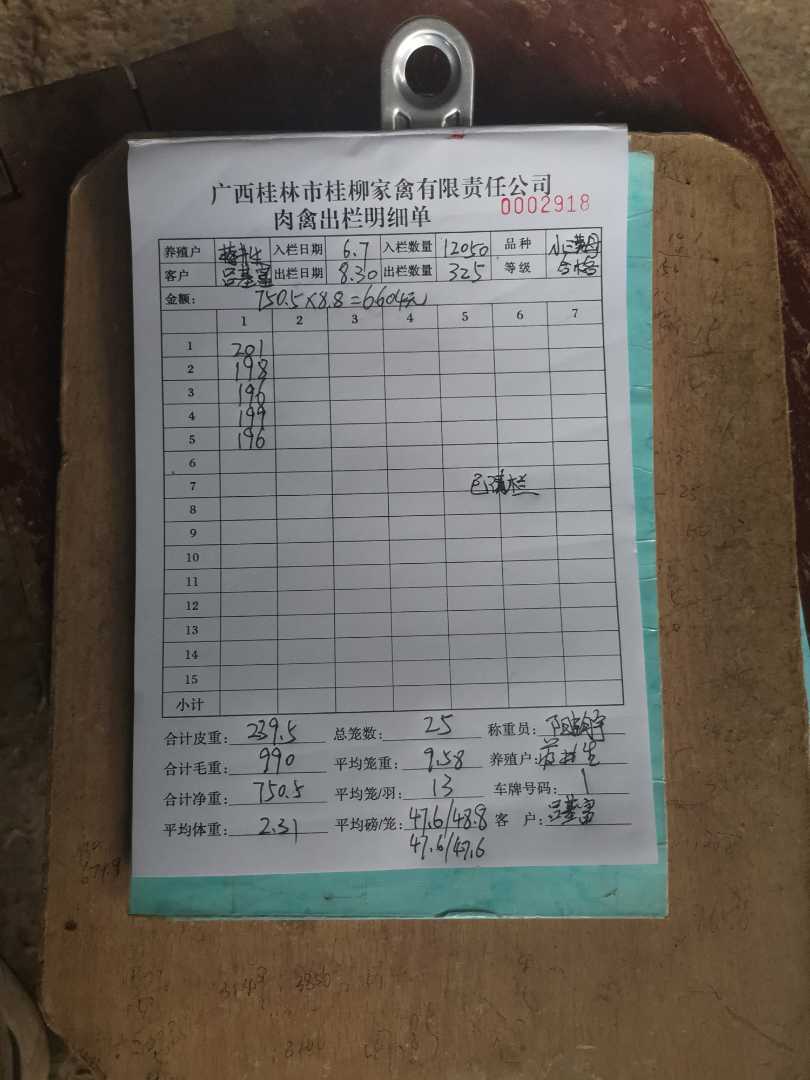 广西桂林市桂柳家禽有限责任公司
肉禽出栏明细单 0002918
养殖户 入栏日期 6.7 入栏数量 12050 品种
客户 吕基富 出栏日期 8.30 出栏数量 325 等级 合格
金额: 750.5×8.8=6604元
1 2 3 4 5 6 7
1 201
2 198
3 196
4 199
5 196
6
7 已清栏
8
9
10
11
12
13
14
15
小计
合计皮重: 239.5 总笼数: 25 称重员:
合计毛重: 990 平均笼重: 9.58 养殖户:
合计净重: 750.5 平均笼/羽: 13 车牌号码: 1
平均体重: 2.31 平均磅/笼: 47.6/48.8 客 户: 吕基富
47.6/47.6